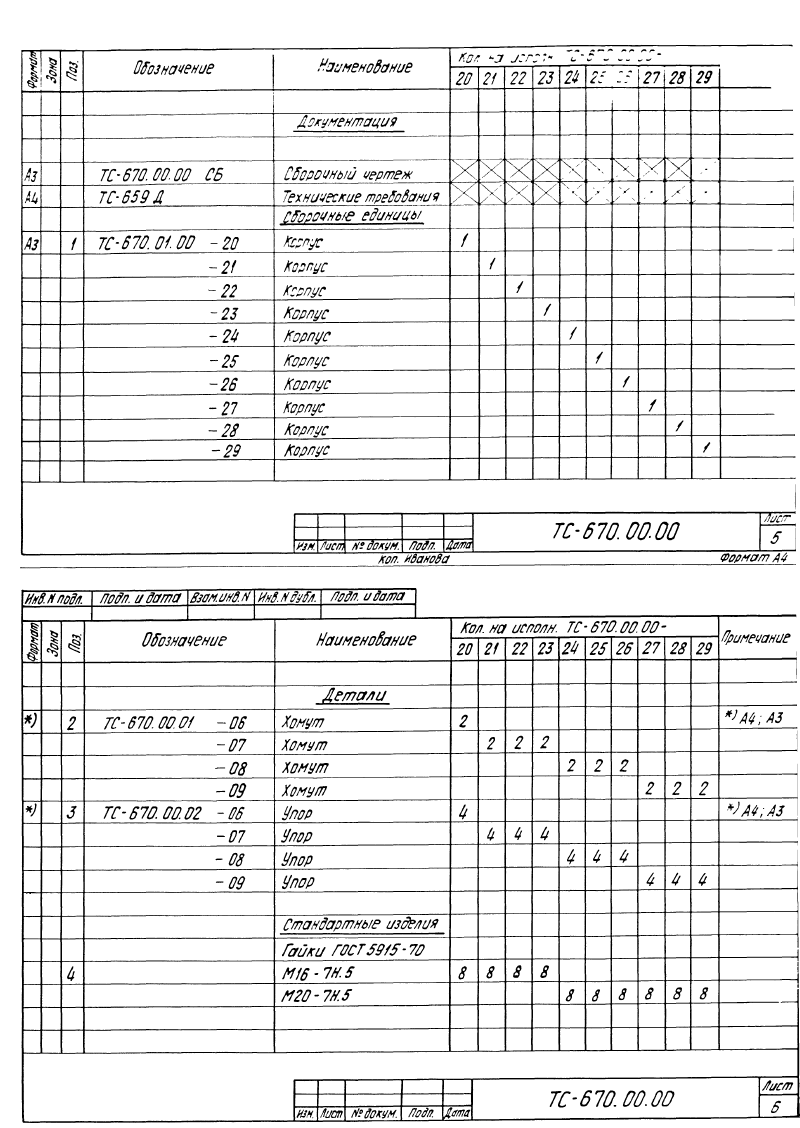 Формат Зона Поз. Обозначение Наименование Кол. на исполн. ТС-670.00.00-
20 21 22 23 24 25 26 27 28 29
Документация
А3 ТС-670.00.00 СБ Сборочный чертеж
А4 ТС-659 Д Технические требования
Сборочные единицы
А3 1 ТС-670.01.00 -20 Корпус 1
-21 Корпус 1
-22 Корпус 1
-23 Корпус 1
-24 Корпус 1
-25 Корпус 1
-26 Корпус 1
-27 Корпус 1
-28 Корпус 1
-29 Корпус 1
ТС-670.00.00 Лист
5
Изм. Лист № докум. Подп. Дата
Коп. Иванова Формат А4
Инв. N подл. Подп. и дата Взам.инв. N Инв. N дубл. Подп. и дата
Формат Зона Поз. Обозначение Наименование Кол. на исполн. ТС-670.00.00- Примечание
20 21 22 23 24 25 26 27 28 29
Детали
*) 2 ТС-670.00.01 -06 Хомут 2 *) А4; А3
-07 Хомут 2 2 2
-08 Хомут 2 2 2
-09 Хомут 2 2 2
*) 3 ТС-670.00.02 -06 Упор 4 *) А4; А3
-07 Упор 4 4 4
-08 Упор 4 4 4
-09 Упор 4 4 4
Стандартные изделия
Гайки ГОСТ 5915-70
4 М16-7Н.5 8 8 8 8
М20-7Н.5 8 8 8 8 8 8
ТС-670.00.00 Лист
6
Изм. Лист № докум. Подп. Дата